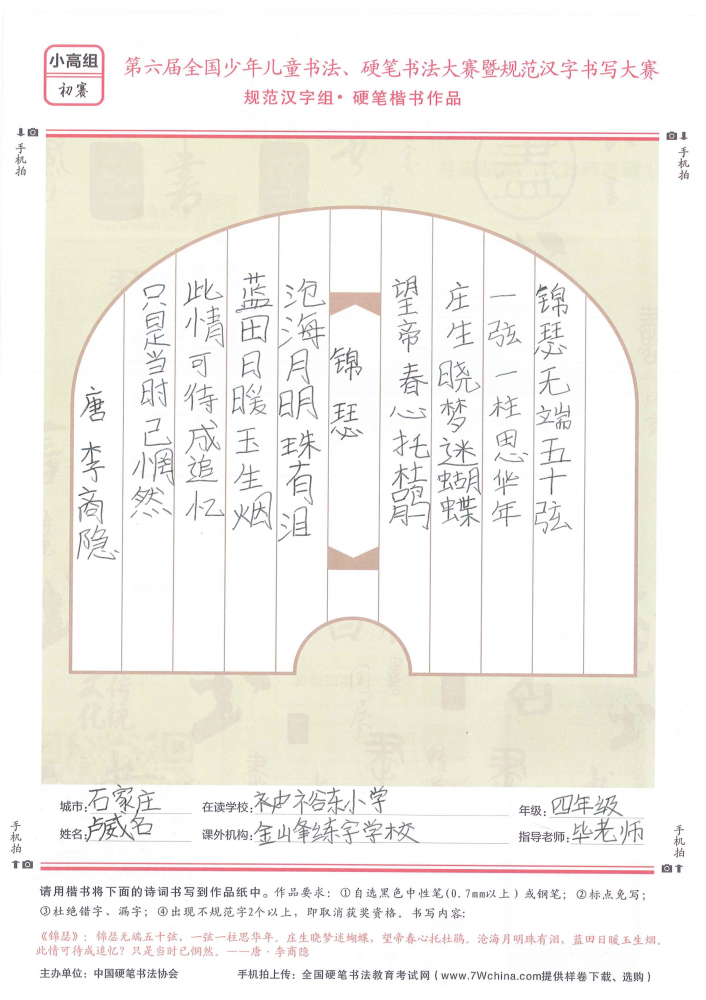 小高组
初赛
第六届全国少年儿童书法、硬笔书法大赛暨规范汉字书写大赛
规范汉字组·硬笔楷书作品
手机拍
手机拍
锦瑟无端五十弦
一弦一柱思华年
庄生晓梦迷蝴蝶
望帝春心托杜鹃
锦瑟
沧海月明珠有泪
蓝田日暖玉生烟
此情可待成追忆
只是当时已惘然
唐 李商隐
城市:石家庄 在读学校:神裕东小学 年级:四年级
姓名:卢威名 课外机构:金山峰练字学校 指导老师:毕老师
手机拍
手机拍
请用楷书将下面的诗词书写到作品纸中。作品要求:①自选黑色中性笔(0.7mm以上)或钢笔;②标点免写;
③杜绝错字、漏字;④出现不规范字2个以上,即取消获奖资格。书写内容:
《锦瑟》:锦瑟无端五十弦,一弦一柱思华年。庄生晓梦迷蝴蝶,望帝春心托杜鹃。沧海月明珠有泪,蓝田日暖玉生烟。
此情可待成追忆?只是当时已惘然。——唐·李商隐
主办单位:中国硬笔书法协会 手机拍上传:全国硬笔书法教育考试网(www.7Wchina.com提供样卷下载、选购)